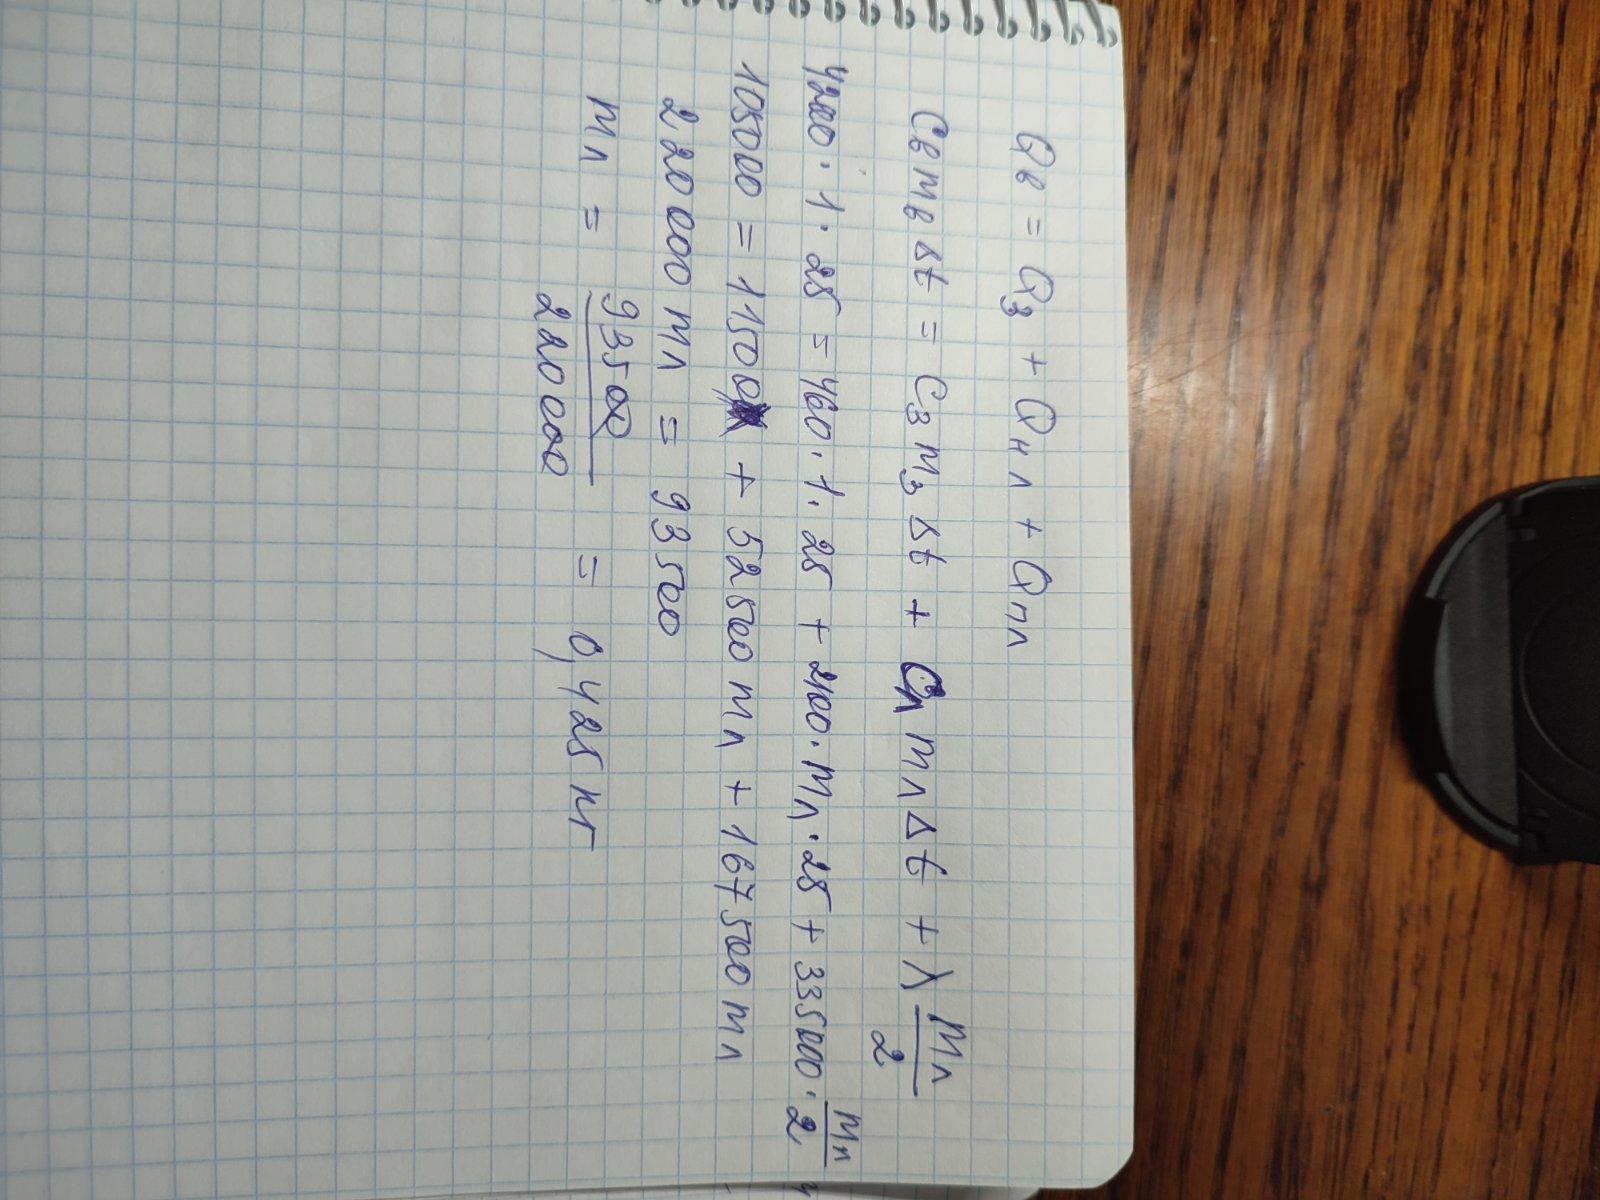 Qв = Qз + Qнл + Qпл
CвmвΔt = Cзmз Δt + Cл mлΔt + λ mл/2
4200·1·25 = 460·1·25 + 2100·mл·25 + 335000·mл/2
105000 = 11500 + 52500 mл + 167500 mл
220000 mл = 93500
mл = 93500/220000 = 0,425 кг